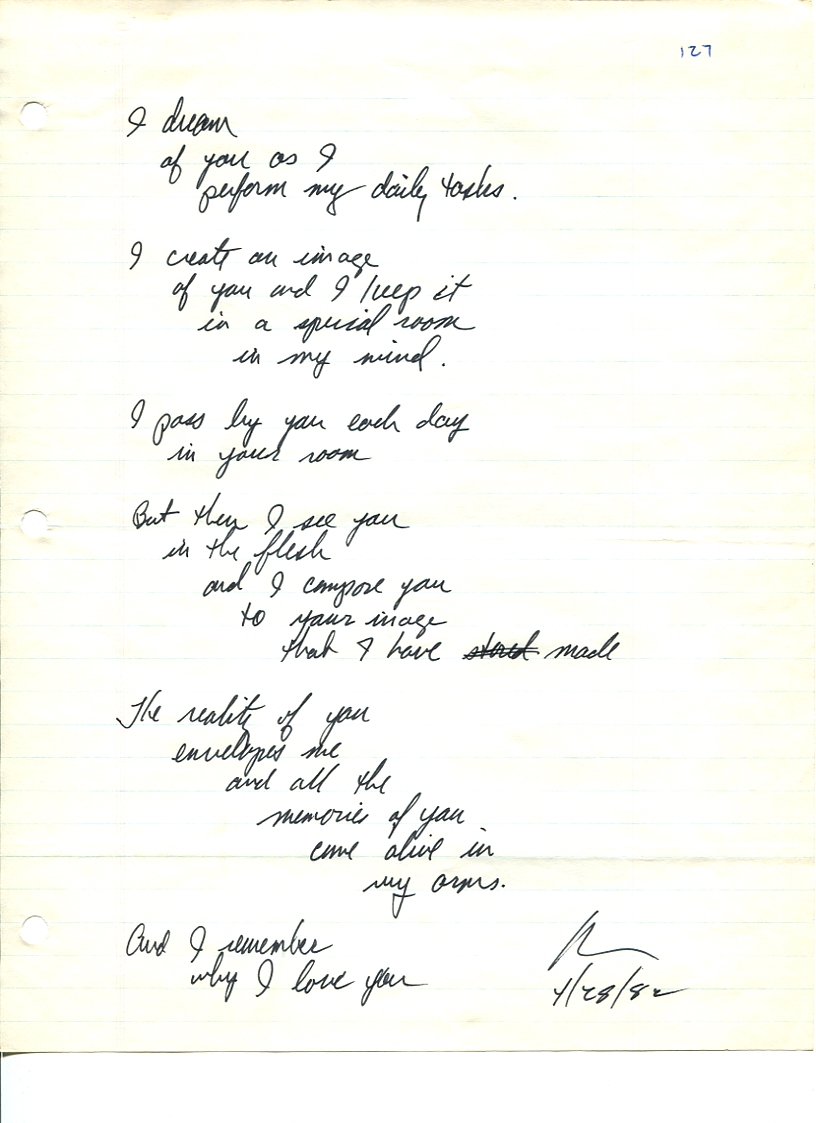 127
I dream
of you as I
perform my daily tasks.
I create an image
of you and I keep it
in a special room
in my mind.
I pass by you each day
in your room
But then I see you
in the flesh
and I compose you
to your image
that I have stored made
The reality of you
envelopes me
and all the
memories of you
come alive in
my arms.
And I remember
why I love you
4/28/82